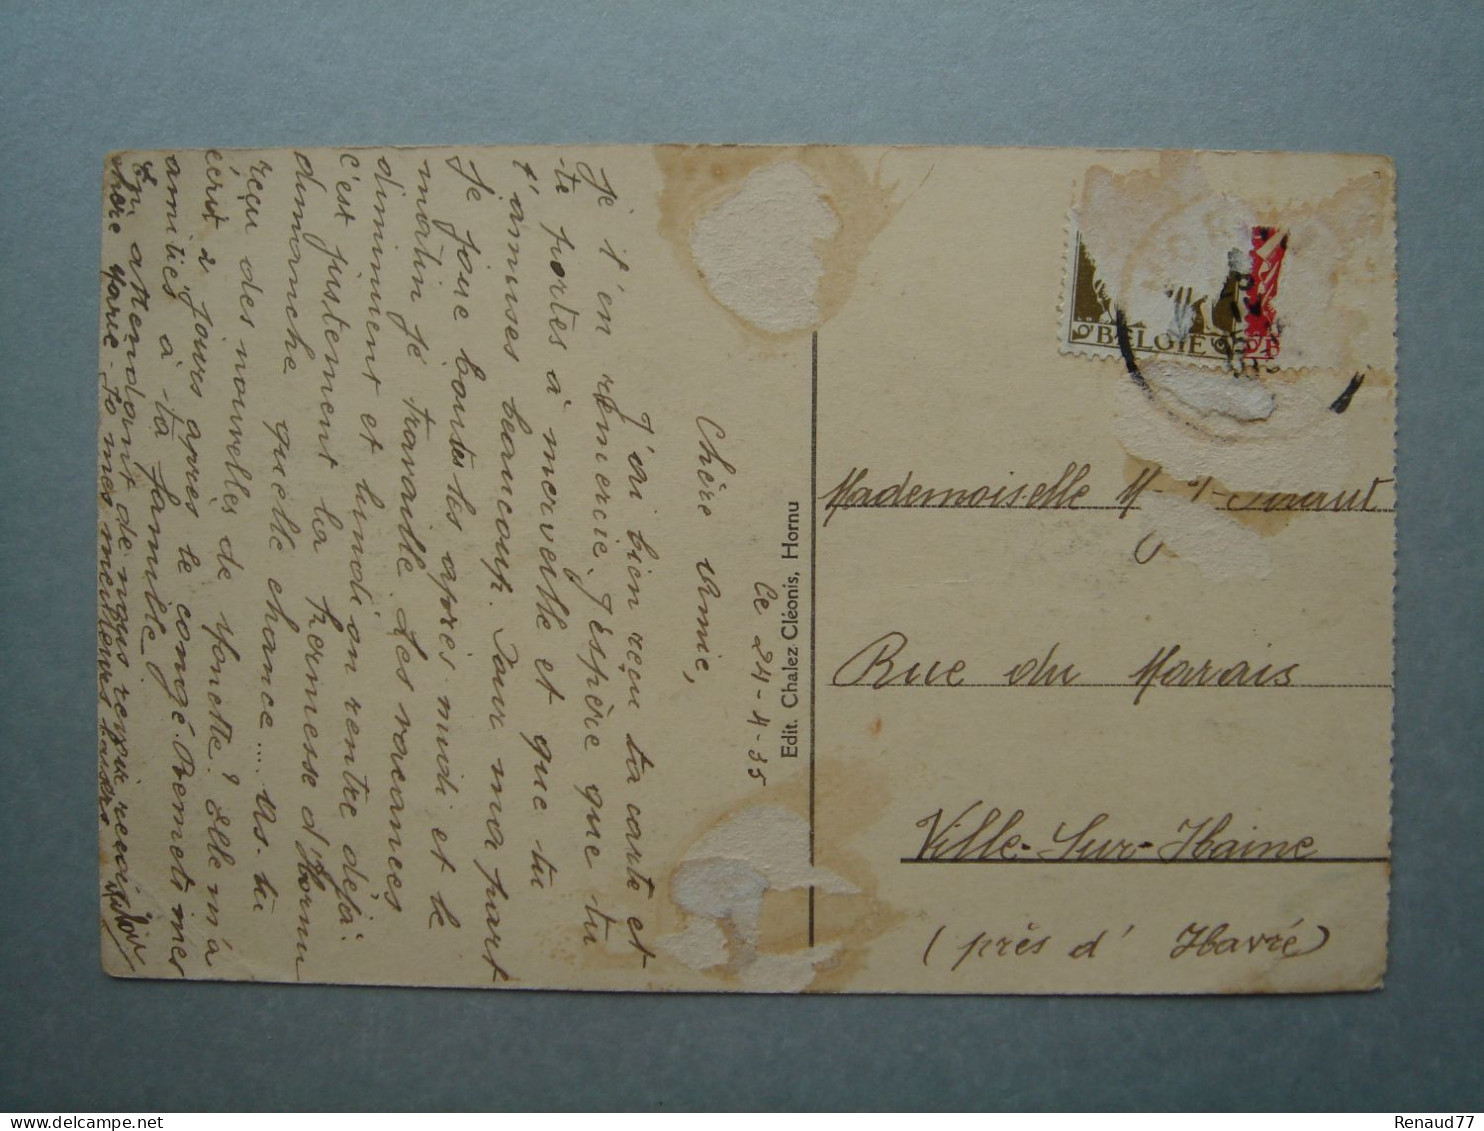 Ce 24-4-35
Chère Amie,
J'ai bien reçu ta carte et
je t'en remercie. J'espère que tu
-te portes à merveille et que tu
t'amuses beaucoup. Pour ma part
je joue toutes les après midi et le
matin je travaille. Les vacances
diminuent et lundi on rentre déjà.
c'est justement la kermesse d'Hornu
dimanche quelle chance.... As-tu
reçu des nouvelles de Ginette? Elle m'a
écrit 2 jours après le congé. Remets mes
amitiés à ta famille.
En attendant de nous revoir
chère Marie-Jo mes meilleurs baisers
Edit. Chalez-Cléonis, Hornu
BELGIE
Mademoiselle M-J-
Rue du Marais
Ville-Sur-Haine
(près d' Havré)
delcampe.net
Renaud77